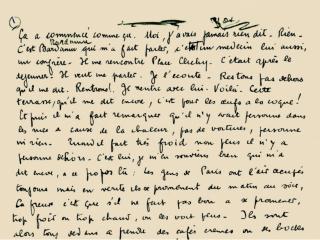 1
Ça a commencé comme ça. Moi, j'avais jamais rien dit. Rien.
Bardamu
C'est qui m'a fait parler, c'était un médecin lui aussi,
un confrère. On se rencontre Place Clichy. C'était après le
déjeuner. Il veut me parler. Je l'écoute. Restons pas dehors
qu'il me dit. Rentrons! Je rentre avec lui. Voilà. Cette
terrasse, qu'il me dit encore, c'est pour les œufs à la coque!
Et puis il m'a fait remarquer qu'il n'y avait personne dans
les rues à cause de la chaleur, pas de voitures, personne
ni rien. Quand il fait très froid non plus il n'y a
personne dehors. C'est lui, je m'en souviens bien qui m'a
dit encore, à ce propos là: les gens de Paris ont l'air occupés
toujours mais en vérité ils se promènent du matin au soir,
La preuve c'est que s'il ne fait pas bon à se promener,
trop froid ou trop chaud, on les voit plus. Ils sont
alors tous dedans à prendre des cafés crèmes ou des bocks